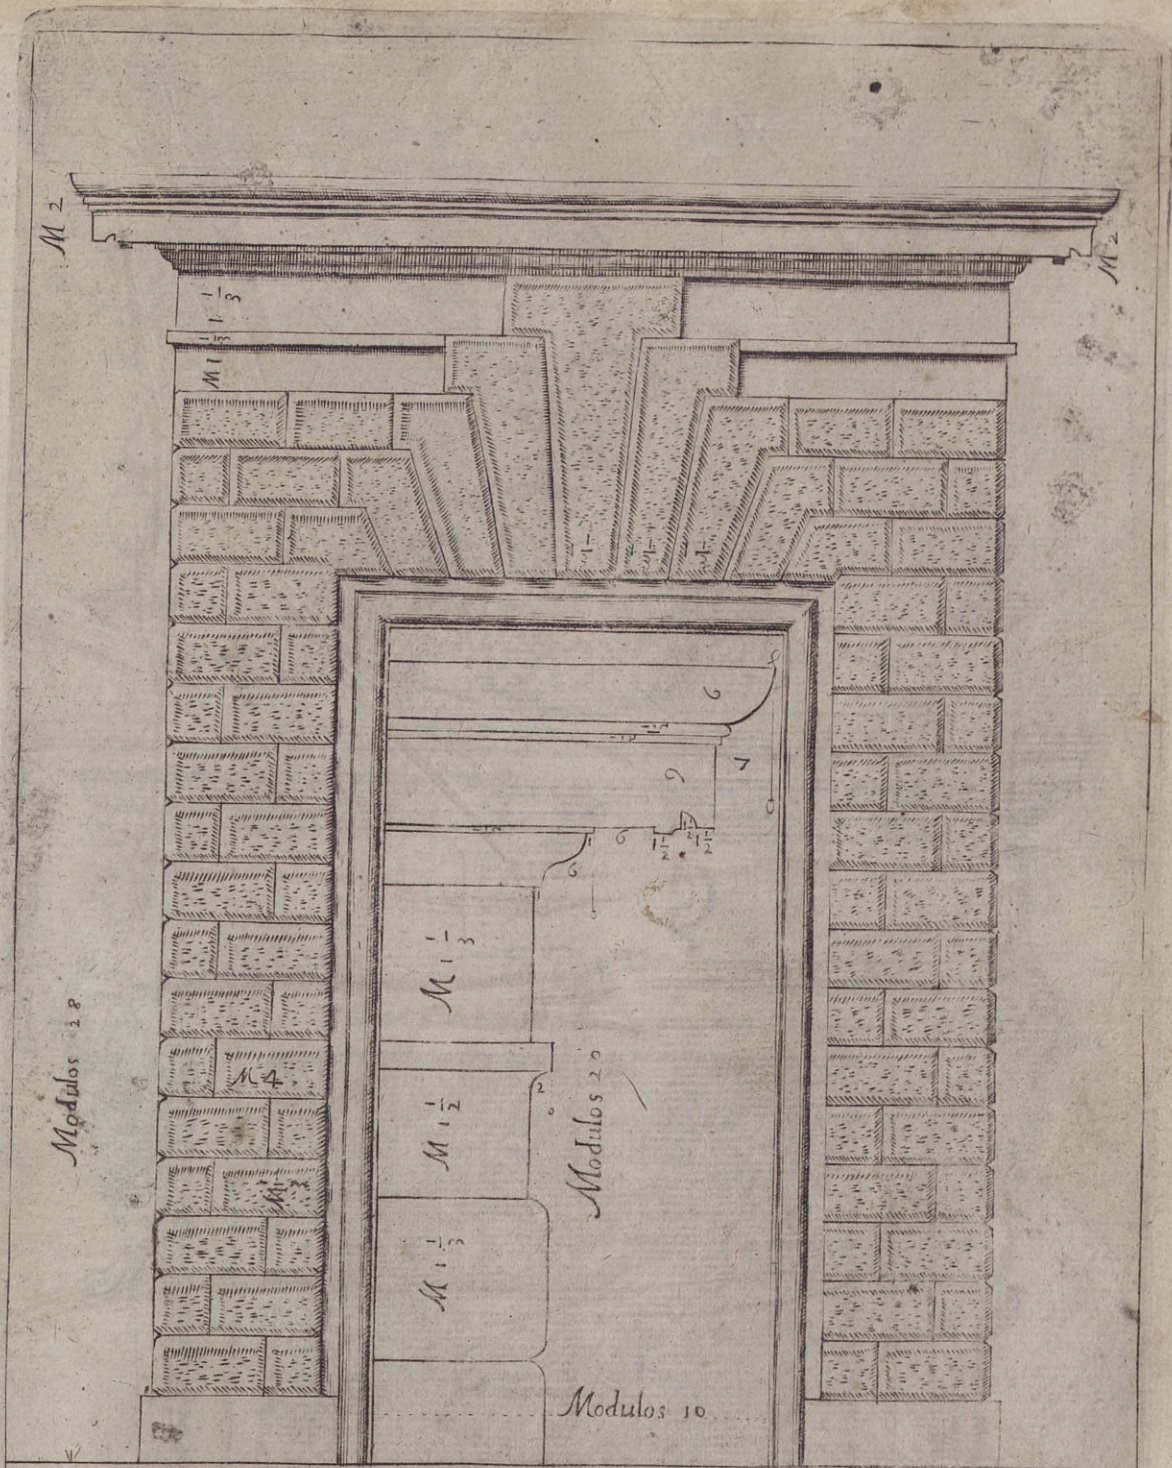 M 2
M 2
1 1/3
1/3
M 1
1/2
1/2
1/2
6
1/2
1/2
6
7
1/2
6
1 1/2
1/2
1 1/2
6
M 1 1/3
Modulos 28
M 4
M 1 1/2
2
Modulos 20
M 3
M 1 1/3
Modulos 10